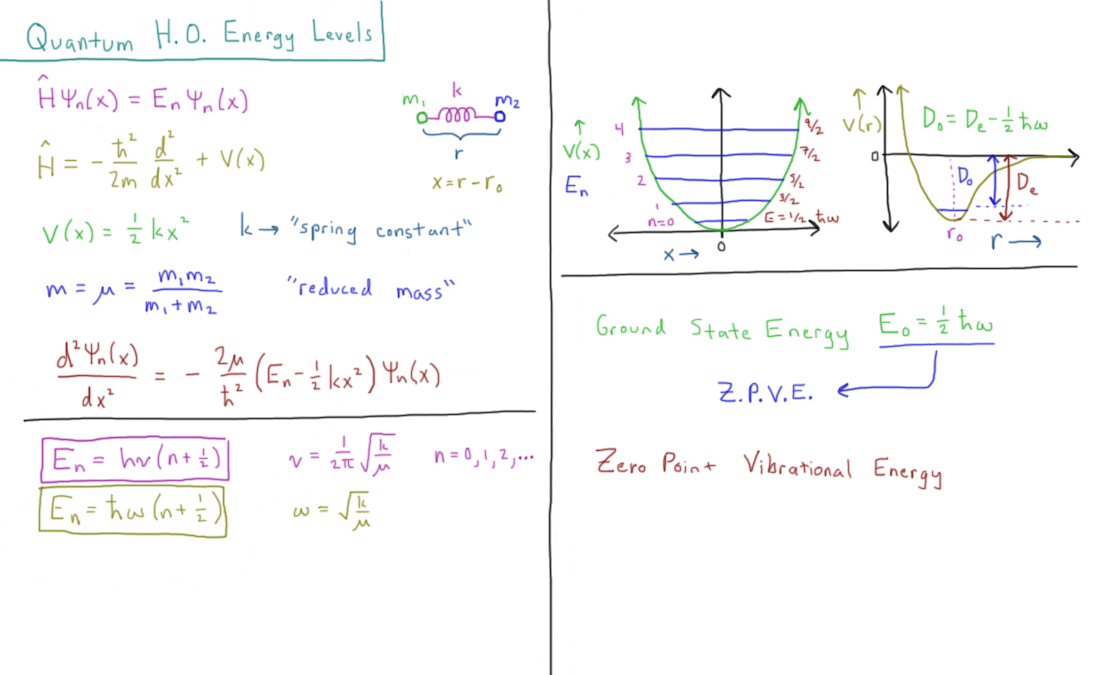 Quantum H.O. Energy Levels
Ĥ Ψₙ(x) = Eₙ Ψₙ(x)
m₁ k m₂
r
x = r - r₀
Ĥ = - ħ²/2m d²/dx² + V(x)
V(x) = ½ kx² k → "spring constant"
m = μ = m₁m₂/m₁+m₂ "reduced mass"
d²Ψₙ(x)/dx² = - 2μ/ħ² (Eₙ - ½ kx²) Ψₙ(x)
Eₙ = hν (n + ½) ν = 1/2π √k/μ n = 0, 1, 2, ...
Eₙ = ħω (n + ½) ω = √k/μ
↑
V(x)
Eₙ
4 9/2
3 7/2
2 5/2
1 3/2
n=0 E = 1/2 ħω
x → 0
↑
V(r)
D₀ = Dₑ - ½ ħω
0
D₀ Dₑ
r₀ r →
Ground State Energy E₀ = ½ ħω
Z.P.V.E. ←
Zero Point Vibrational Energy